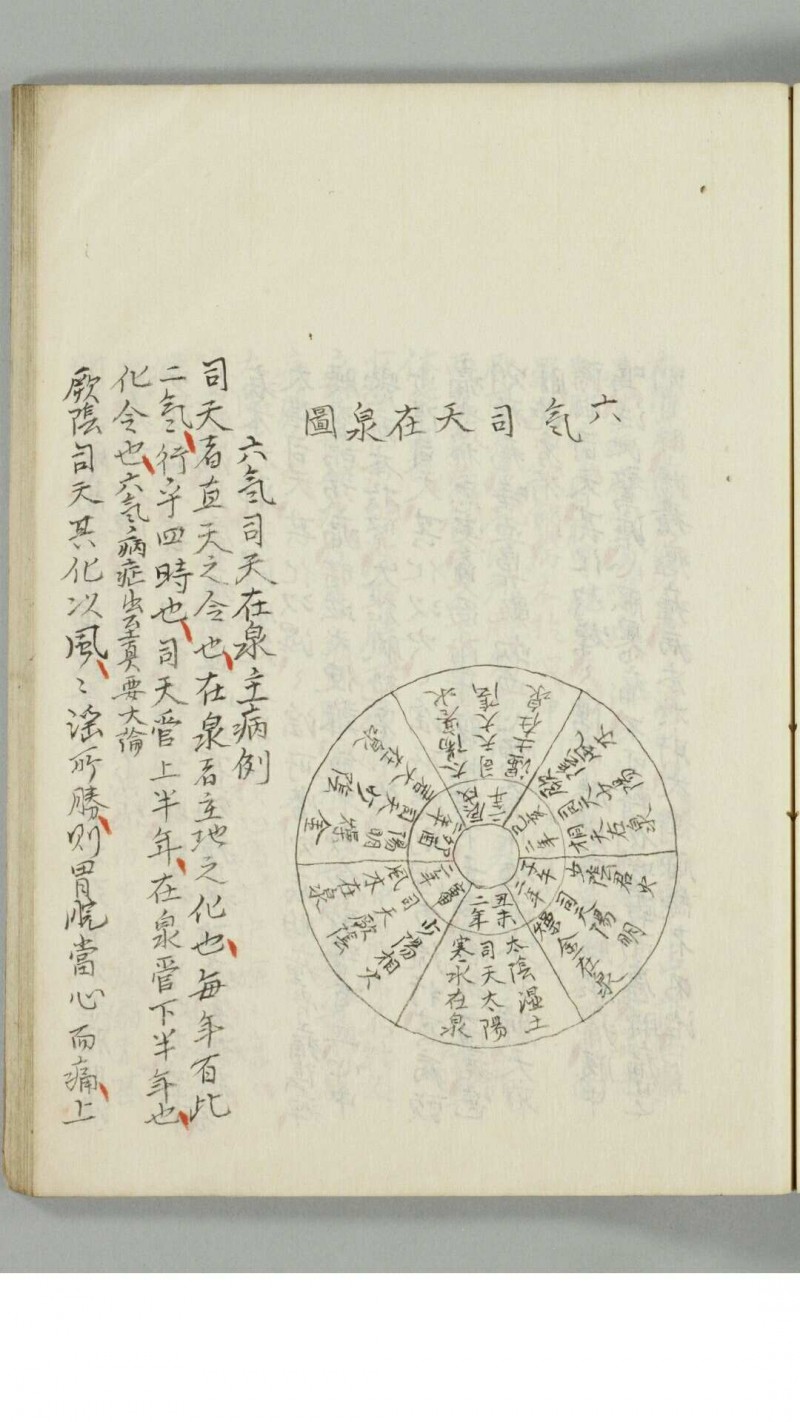 六氣司天在泉圖
丑未
二年
太陰湿土
司天太陽
寒水在泉
子午
二年
少陰君火
司天陽明
燥金在泉
巳亥
二年
厥陰風木
司天少陽
相火在泉
辰戌
二年
太陽寒水
司天太陰
湿土在泉
卯酉
二年
陽明燥金
司天少陰
君火在泉
寅申
二年
少陽相火
司天厥陰
風木在泉
六氣司天在泉主病例
司天者直天之令也在泉者主地之化也每年有此
二氣行乎四時也司天管上半年在泉管下半年也
化令也六氣〻病症出至真要大論
厥陰司天其化以風〻淫所勝則胃脘當心而痛上